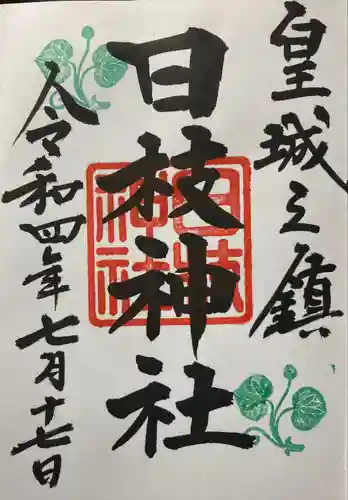 皇城之鎮
日枝神社
日枝神社
令和四年七月十七日